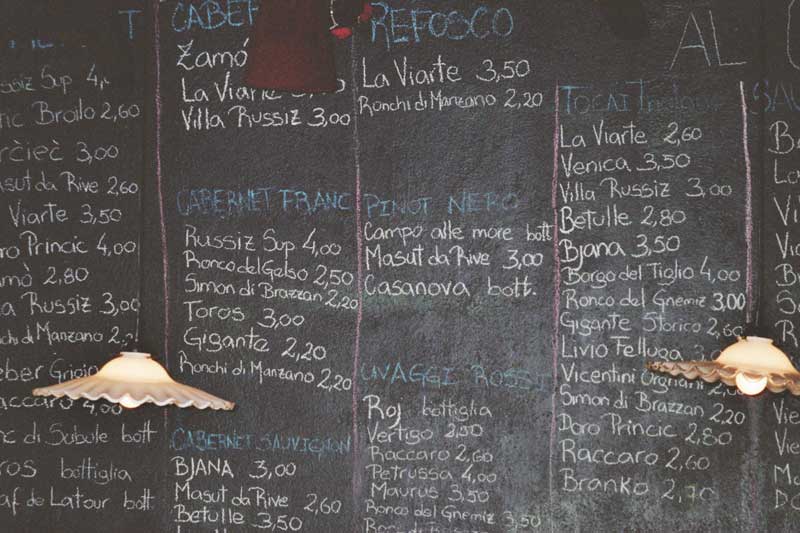 T
ssiz Sup 4,
nc Broilo 2,60
rčieč 3,00
asut da Rive 2,60
Viarte 3,50
oro Princic 4,00
amò 2,80
a Russiz 3,00
onchi di Manzano 2,
eber Grigio
accaro 4,00
nc di Subule bott
ros bottiglia
af de Latour bott
CABER
Zamó
La Viarte 3,50
Villa Russiz 3,00
CABERNET FRANC
Russiz Sup 4,00
Ronco del Gelso 2,50
Simon di Brazzan 2,20
Toros 3,00
Gigante 2,20
Ronchi di Manzano 2,20
CABERNET SAUVIGNON
BJANA 3,00
Masut da Rive 2,60
Betulle 3,50
REFOSCO
La Viarte 3,50
Ronchi di Manzano 2,20
PINOT NERO
Campo alle more bott
Masut da Rive 3,00
Casanova bott.
UVAGGI ROSSI
Roj bottiglia
Vertigo 2,50
Raccaro 2,60
Petrussa 4,00
Maurus 3,50
Ronco del Gnemiz 3,50
AL
TOCAI
La Viarte 2,60
Venica 3,50
Villa Russiz 3,00
Betulle 2,80
Bjana 3,50
Borgo del Tiglio 4,00
Ronco del Gnemiz 3,00
Gigante Storico 2,60
Livio Felluga
Vicentini Orgnani
Simon di Brazzan 2,20
Doro Princic 2,80
Raccaro 2,60
Branko 2,70
SAU